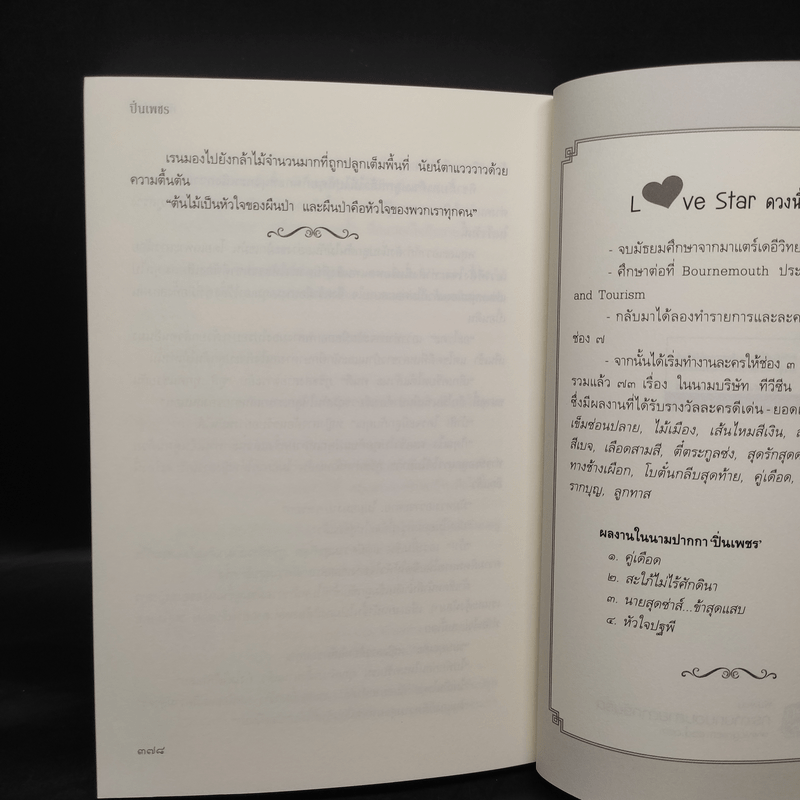 ปิ่นเพชร
เรนมองไปยังกล้าไม้จำนวนมากที่ถูกปลูกเต็มพื้นที่ นัยน์ตาแวววาวด้วย
ความตื้นตัน
“ต้นไม้เป็นหัวใจของผืนป่า และผืนป่าคือหัวใจของพวกเราทุกคน”
๓๗๘
L ve Star ดวงนี้
- จบมัธยมศึกษาจากมาแตร์เดอีวิทย
- ศึกษาต่อที่ Bournemouth ประ
and Tourism
- กลับมาได้ลองทำรายการและละค
ช่อง ๗
- จากนั้นได้เริ่มทำงานละครให้ช่อง ๓
รวมแล้ว ๗๓ เรื่อง ในนามบริษัท ทีวีซีน
ซึ่งมีผลงานที่ได้รับรางวัลละครดีเด่น - ยอดเ
เข็มซ่อนปลาย, ไม้เมือง, เส้นไหมสีเงิน,
สีเบจ, เลือดสามสี, ตี๋ตระกูลซ่ง, สุดรักสุดด
ทางช้างเผือก, โบตั๋นกลีบสุดท้าย, คู่เดือด,
รากบุญ, ลูกทาส
ผลงานในนามปากกา ‘ปิ่นเพชร’
๑. คู่เดือด
๒. สะใภ้ไม่ไร้ศักดินา
๓. นายสุดซ่าส์...ข้าสุดแสบ
๔. หัวใจปฐพี